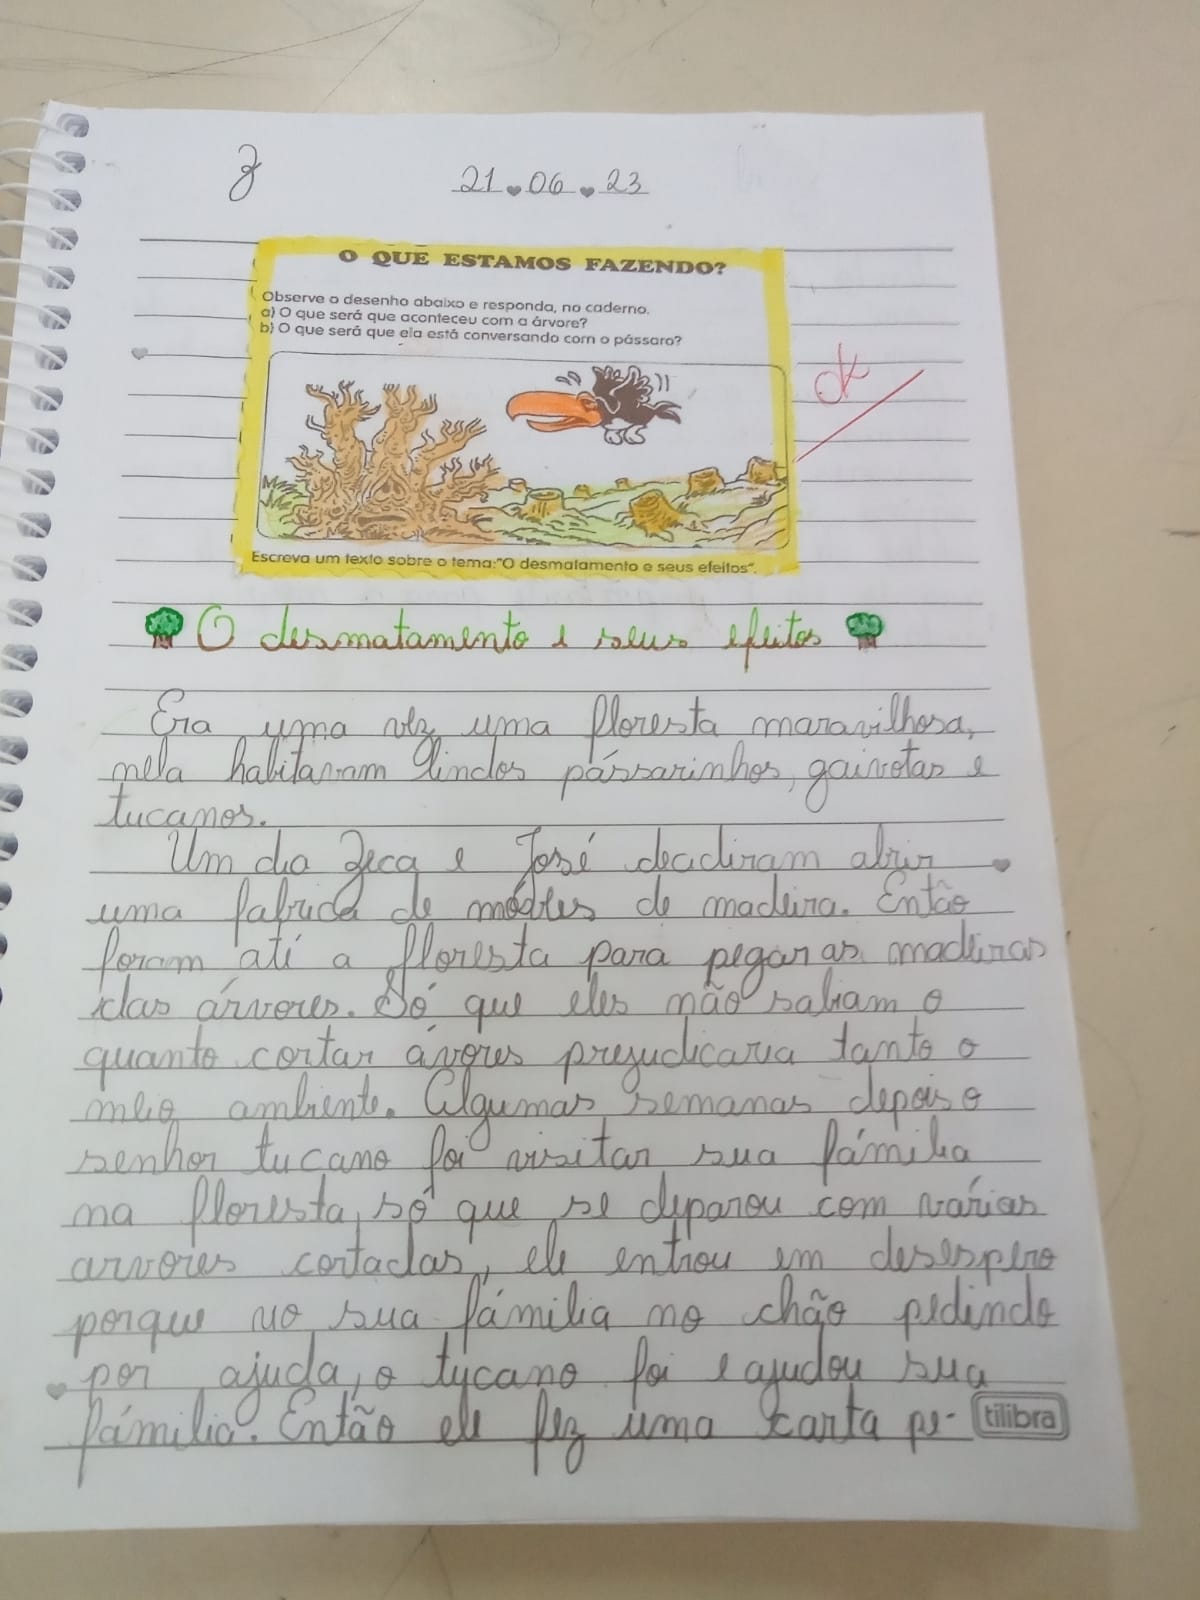 21.06.23
O QUE ESTAMOS FAZENDO?
Observe o desenho abaixo e responda, no caderno.
a) O que será que aconteceu com a árvore?
b) O que será que ela está conversando com o pássaro?
ok
Escreva um texto sobre o tema:"O desmatamento e seus efeitos".
O desmatamento e seus efeitos
Era uma vez uma floresta maravilhosa,
nela habitavam lindos pássarinhos, gaivotas e
tucanos.
Um dia Zeca e José decidiram abrir
uma fabrica de móveles de madeira. Então
foram até a floresta para pegar as madeiras
das árvores. Só que eles não sabiam o
quanto cortar ávores prejudicaria tanto o
meio ambiente. Algumas semanas depois o
senhor tucano foi visitar sua fámilia
na floresta, só que se deparou com várias
arvores cortadas, ele entrou em desespero
porque viu sua fámilia no chão pedindo
por ajuda, o tucano foi e ajudou sua
fámilia. Então ele fez uma carta pe-
tilibra